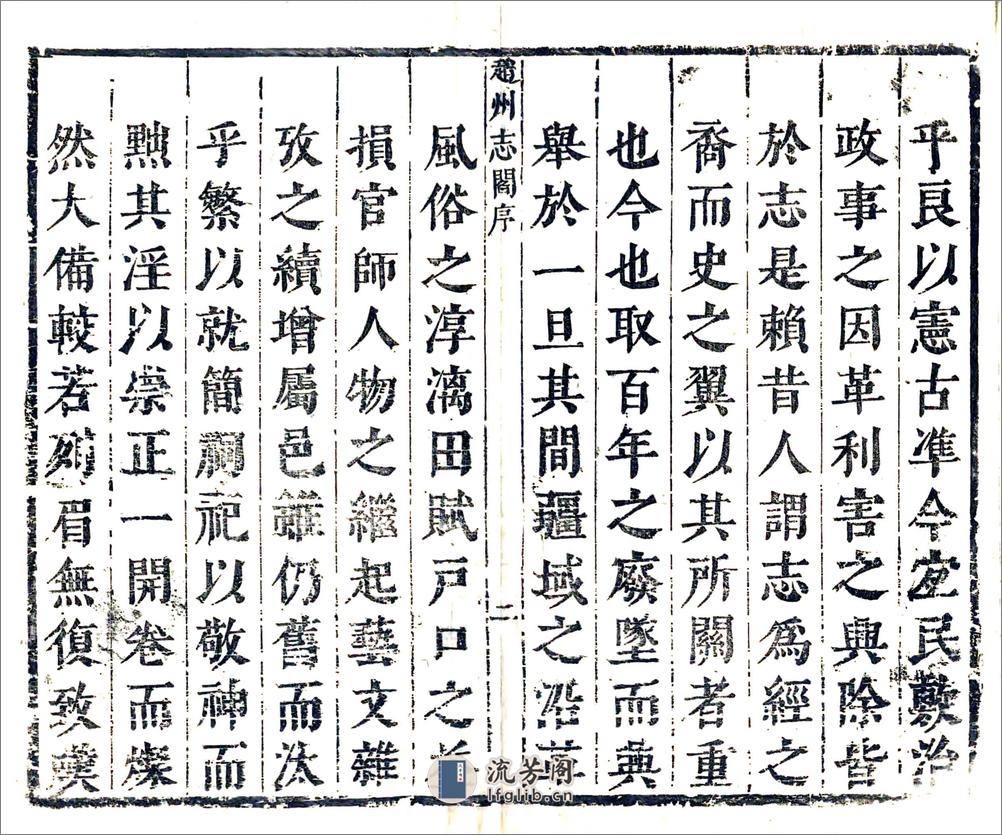 乎良以憲古準今宜民敷治
政事之因革利害之興除皆
於志是賴昔人謂志爲經之
裔而史之翼以其所關者重
也今也取百年之廢墜而典
舉於一旦其間疆域之沿革
趙州志閻序
二
風俗之淳漓田賦戸口之
損官師人物之繼起藝文雜
攷之續增屬邑雖仍舊而汰
乎繁以就簡祠祀以敬神而
黜其淫以崇正一開卷而燦
然大備較若列眉無復致嘆
流芳阁
lfglib.cn